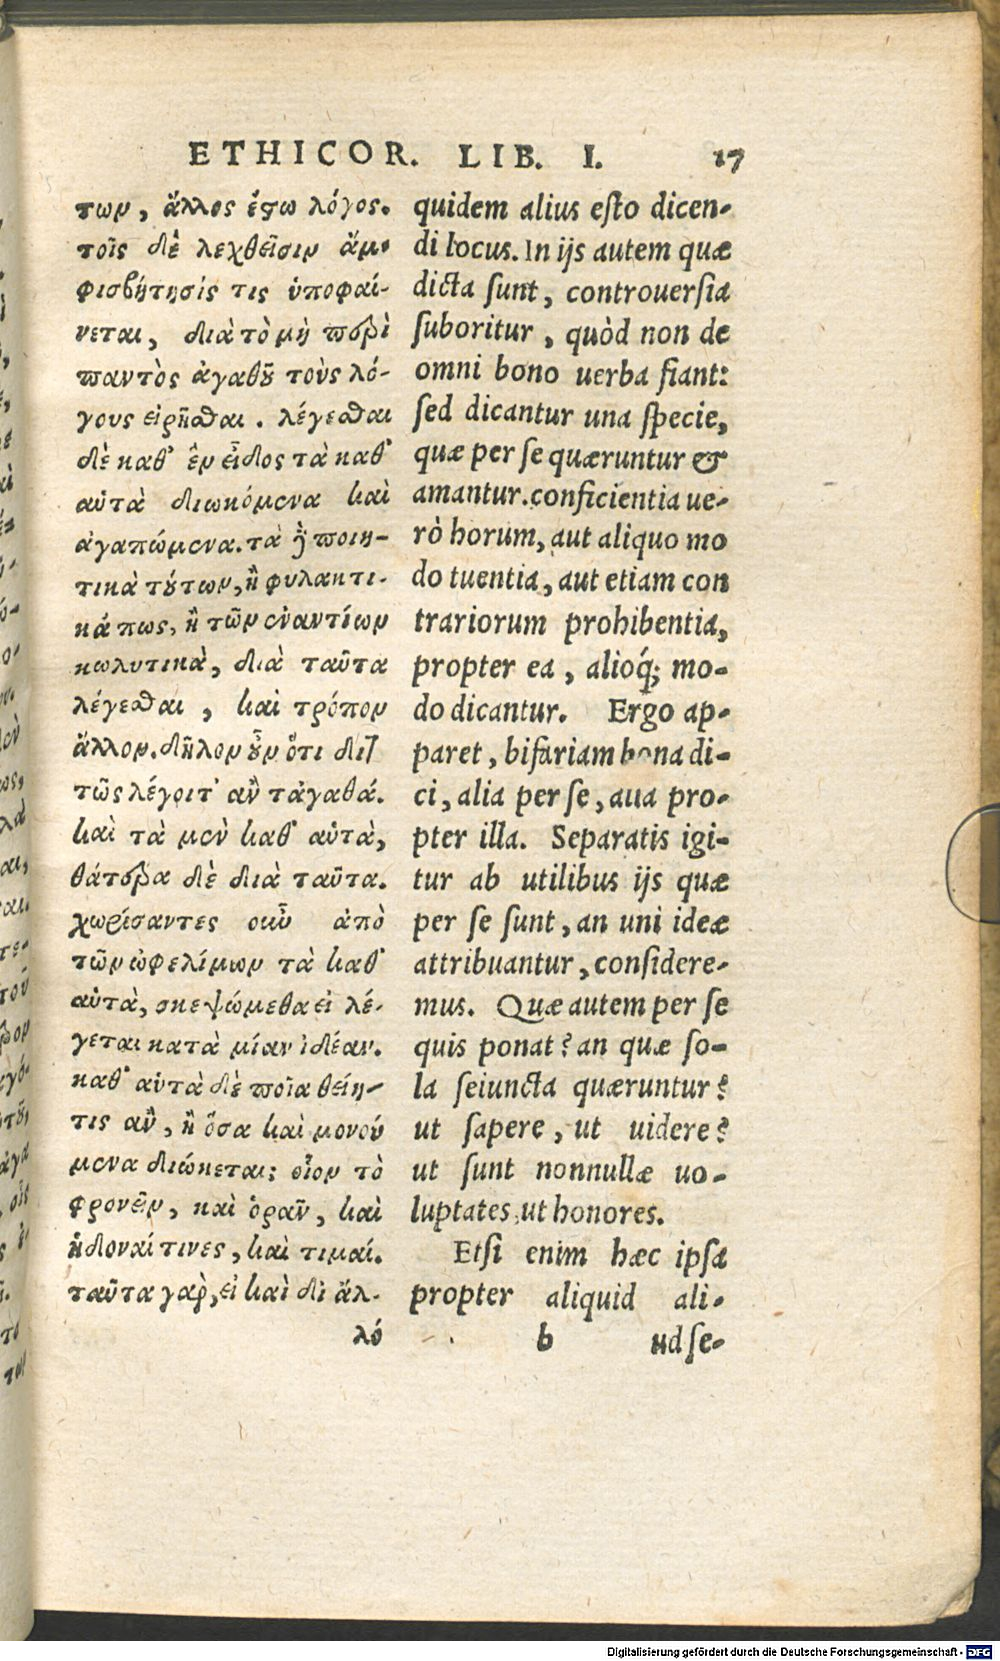 ETHICOR. LIB. I. 17
των, ἄλλος ἔστω λόγος.
τοῖς δὲ λεχθεῖσιν ἀμ-
φισβήτησίς τις ὑποφαί-
νεται, διὰ τὸ μὴ περὶ
παντὸς ἀγαθοῦ τοὺς λό-
γους εἰρῆσθαι. λέγεσθαι
δὲ καθ' ἓν εἶδος τὰ καθ'
αὑτὰ διωκόμενα καὶ
ἀγαπώμενα. τὰ δὲ ποιη-
τικὰ τούτων, ἢ φυλακτι-
κά πως, ἢ τῶν ἐναντίων
κωλυτικὰ, διὰ ταῦτα
λέγεσθαι, καὶ τρόπον
ἄλλον. δῆλον οὖν ὅτι διτ
τῶς λέγοιτ' ἂν τἀγαθά.
καὶ τὰ μὲν καθ' αὑτὰ,
θάτερα δὲ διὰ ταῦτα.
χωρίσαντες οὖν ἀπὸ
τῶν ὠφελίμων τὰ καθ'
αὑτὰ, σκεψώμεθα εἰ λέ-
γεται κατὰ μίαν ἰδέαν.
καθ' αὑτὰ δὲ ποῖα θείη-
τις ἂν, ἢ ὅσα καὶ μονού
μενα διώκεται; οἷον τὸ
φρονεῖν, καὶ ὁρᾶν, καὶ
ἡδοναί τινες, καὶ τιμαί.
ταῦτα γὰρ, εἰ καὶ δι ἄλ-
λό
quidem alius esto dicen-
di locus. In ijs autem quæ
dicta sunt, controuersia
suboritur, quòd non de
omni bono uerba fiant:
sed dicantur una specie,
quæ per se quæruntur &
amantur. conficientia ue-
rò horum, aut aliquo mo
do tuentia, aut etiam con
trariorum prohibentia,
propter ea, alioq́; mo-
do dicantur. Ergo ap-
paret, bifariam bona di-
ci, alia per se, alia pro-
pter illa. Separatis igi-
tur ab utilibus ijs quæ
per se sunt, an uni ideæ
attribuantur, considere-
mus. Quæ autem per se
quis ponat? an quæ so-
la seiuncta quæruntur?
ut sapere, ut uidere?
ut sunt nonnullæ uo-
luptates, ut honores.
Etsi enim hæc ipsa
propter aliquid ali-
b ud se-
Digitalisierung gefördert durch die Deutsche Forschungsgemeinschaft - DFG